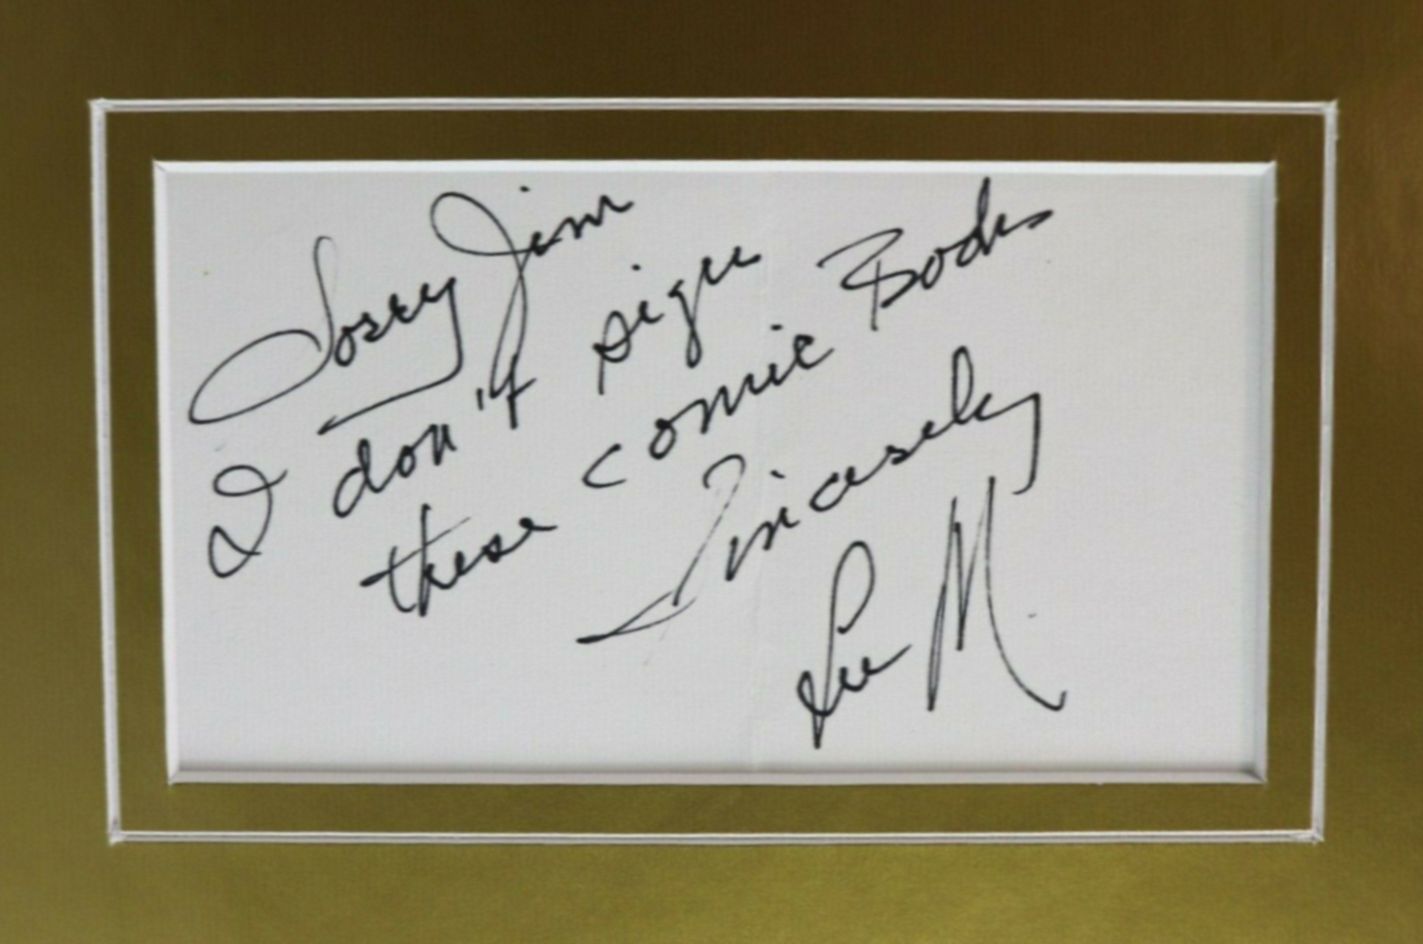 Sorry Jim
I don't sign
these comic Books
Sincerely
Lee M